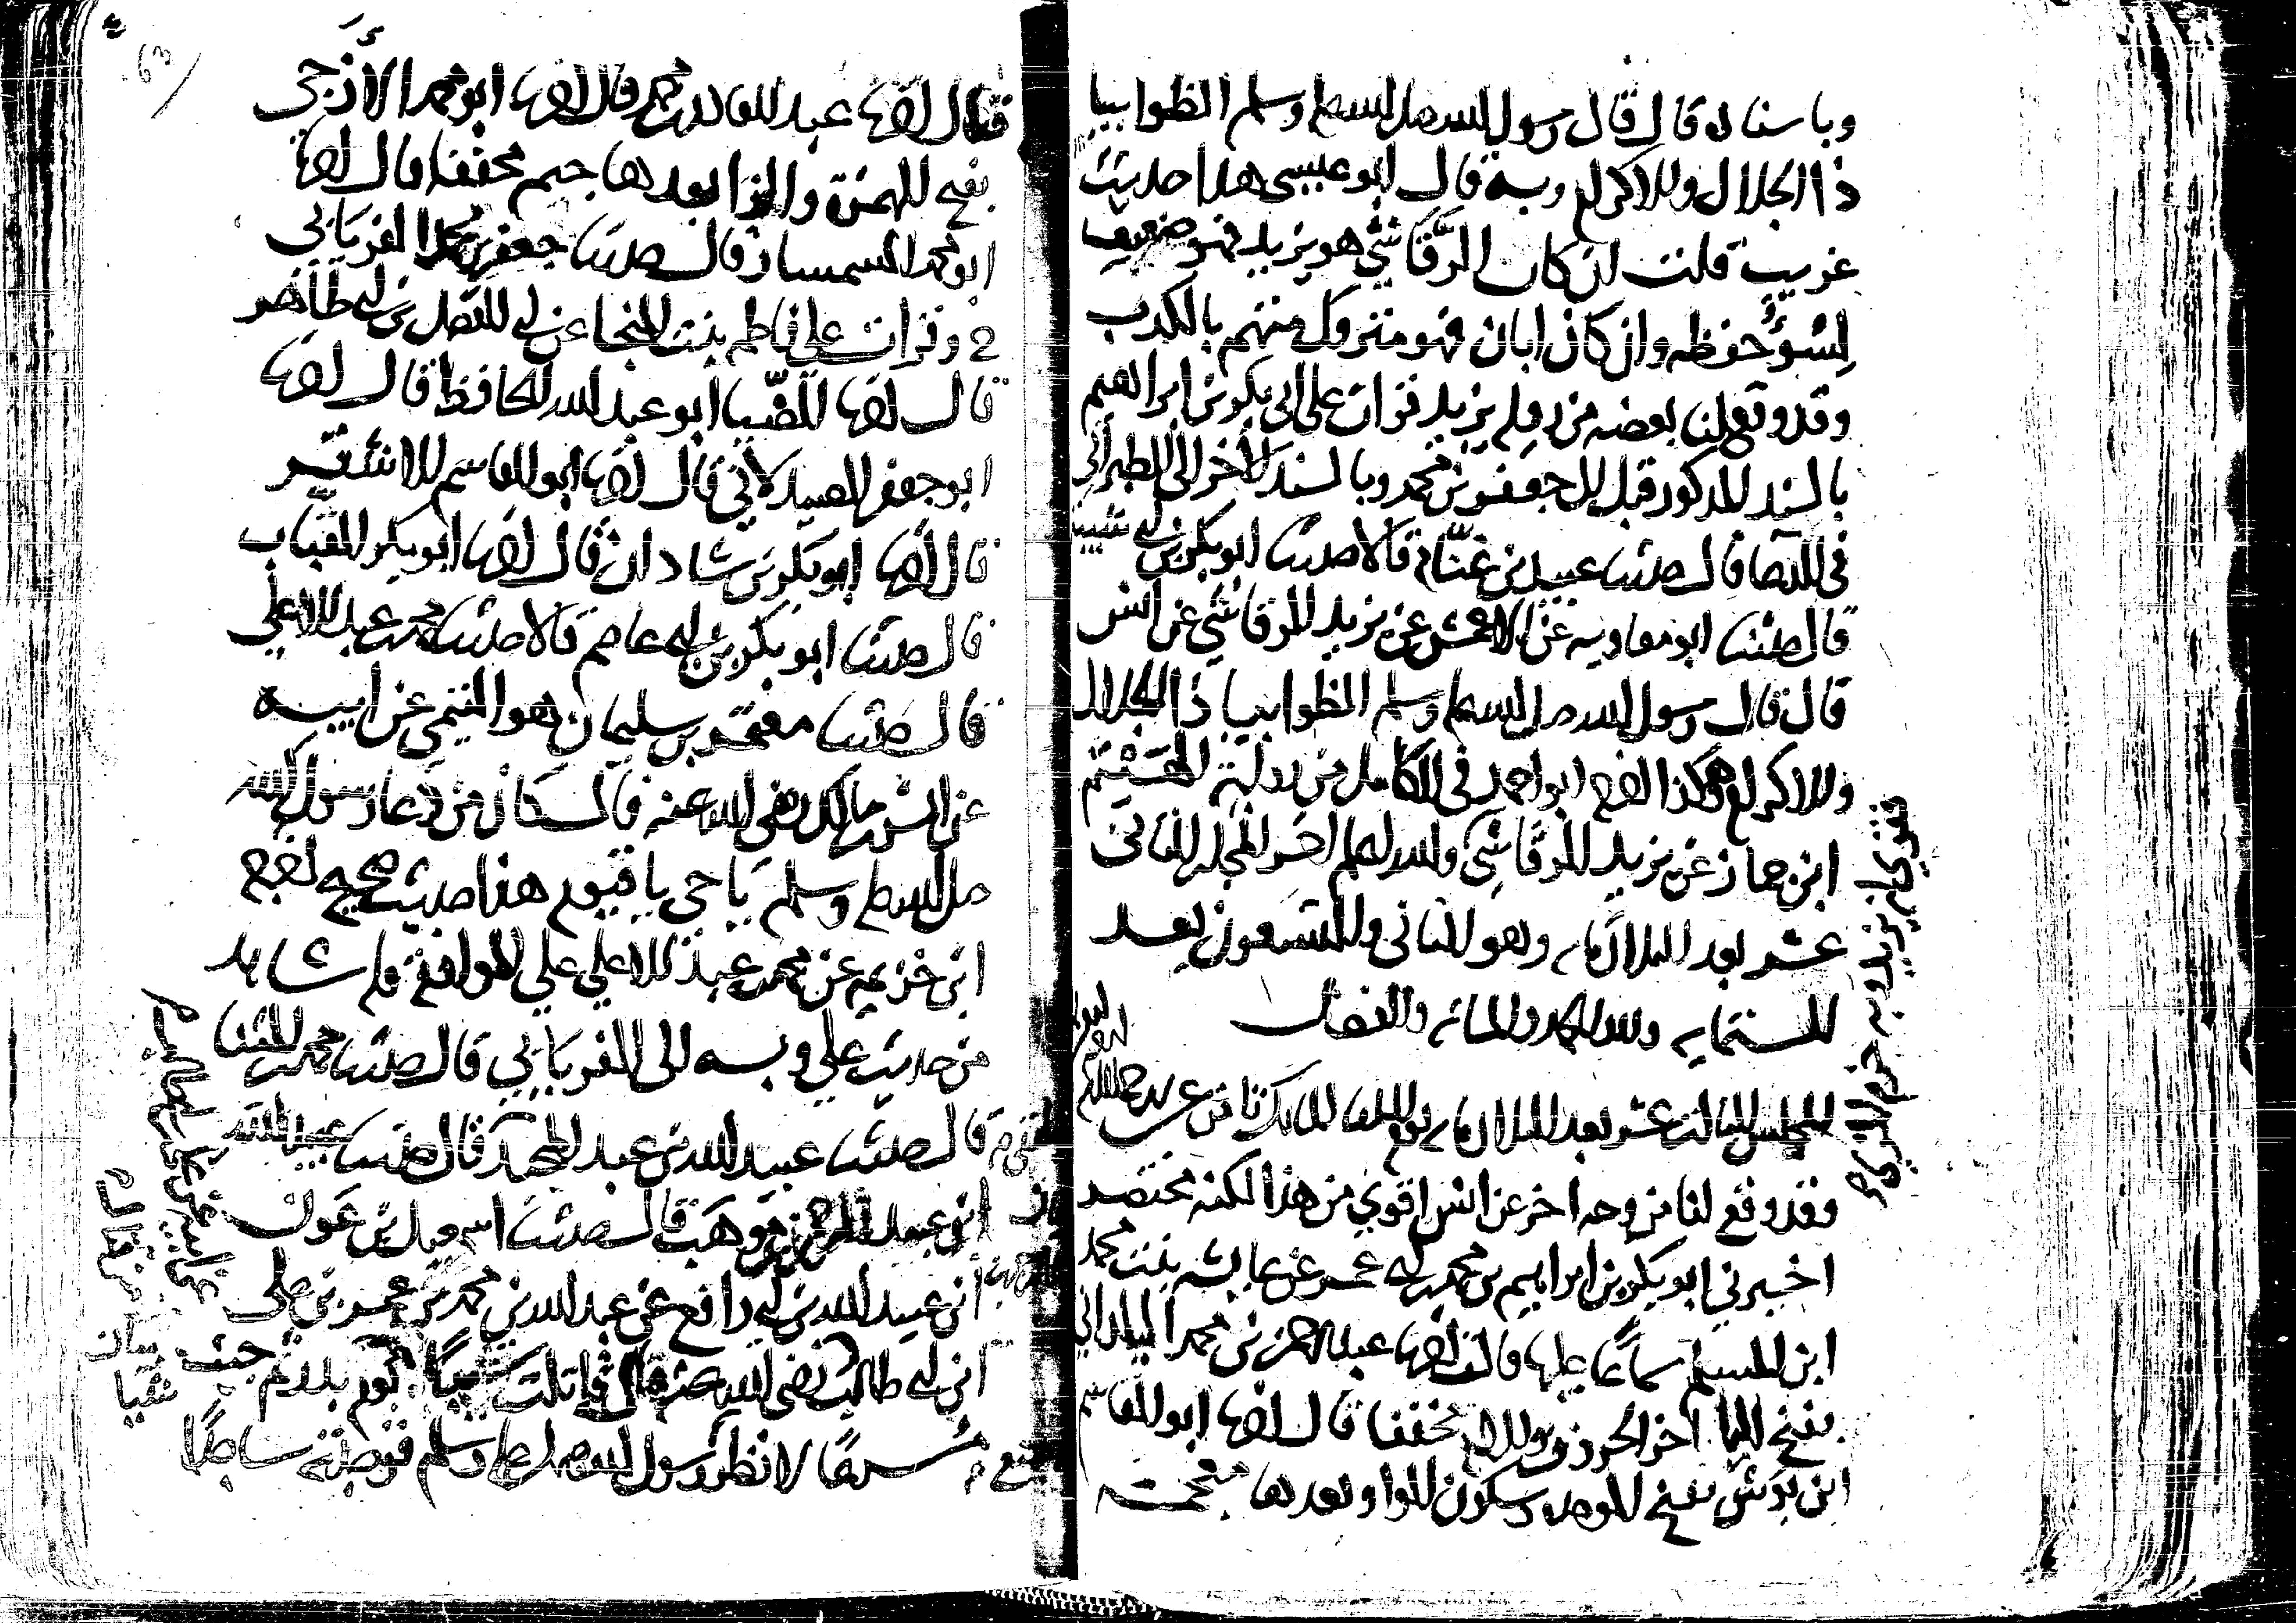 وباسناده قال قال رسول الله صلى الله عليه وسلم الظوا بيا
ذا الجلال والاكرام وبه قال ابو عيسى هذا حديث
غريب قلت ان كان الرَّقَاشي هو يزيد فهو ضعيف
لسُوء حفظه وان كان ابان فهو متروك متهم بالكذب
وقد وقع لنا بعضه من رواية يزيد قرات على ابي بكر بن ابراهيم
بالسند المذكور قبل الى جعفر بن محمد وبالسند الاخر الى الطبراني
في الدعا قال حدثنا عبيد بن غنّام قالا حدثنا ابو بكر بن ابي شيبة
قال حدثنا ابو معاوية عن الاعمش عن يزيد الرقاشي عن انس
قال قال رسول الله صلى الله عليه وسلم الظوا بيا ذا الجلال
والاكرام وهكذا اخرجه ابو احمد في الكامل من رواية الهيثم
ابن جماز عن يزيد الرقاشي والله اعلم اخر المجلس الثاني
عشر بعد الثلاثمايه وهو الثاني والتسعون بعد
الستمايه ولله الحمد والمنه والفضل
المجلس الثالث عشر بعد الثلاثمايه
وقد وقع لنا من وجه اخر عن انس اقوى من هذا لكنه مختصر
اخبرني ابو بكر بن ابراهيم بن محمد بن ابي عمر عن عايشه بنت محمد
ابن المسلم سماعًا عليها قالت اخبرنا عبد الرحمن بن محمد اليلداني
بفتح اليا اخر الحروف واللام مخففا قال اخبرنا ابو القاسم
ابن بوش بفتح الموحده وسكون الواو وبعدها معجمة
63
قال اخبرنا عبد القادر بن محمد قال اخبرنا ابو محمد الازجي
بفتح الهمزة والزا بعدها جيم مخففا قال اخبرنا
ابو محمد السمسار قال حدثنا جعفر بن محمد الفريابي
ح وقرات على فاطمة بنت المنجا عن ابي الفضل بن ابي طاهر
قال اخبرنا الضيا ابو عبد الله الحافظ قال اخبرنا
ابو جعفر الصيدلاني قال اخبرنا ابو القاسم الاشقر
قال اخبرنا ابو بكر بن شاذان قال اخبرنا ابو بكر القباب
قال حدثنا ابو بكر بن ابي عاصم قالا حدثنا محمد بن عبد الاعلى
قال حدثنا معتمر بن سليمان هو التيمي عن ابيه
عن انس بن مالك رضي الله عنه قال كان من دعا رسول الله
صلى الله عليه وسلم يا حي يا قيوم هذا حديث صحيح اخرجه
ابن خزيمه عن محمد بن عبد الاعلى على الموافقة وله شاهد
من حديث علي وبه الى الفريابي قال حدثنا محمد بن المثنى
قال حدثنا عبيد الله بن عبد المجيد قال حدثنا عبيد الله
ابن عبد الرحمن بن موهب قال حدثنا اسمعيل بن عون
ابن عبيد الله بن ابي رافع عن عبد الله بن محمد بن عمر بن علي
ابن ابي طالب رضي الله عنه قال قاتلت شيئًا يوم بدر ثم جئت
مسرعًا لانظر رسول الله صلى الله عليه وسلم فوجدته ساجدًا